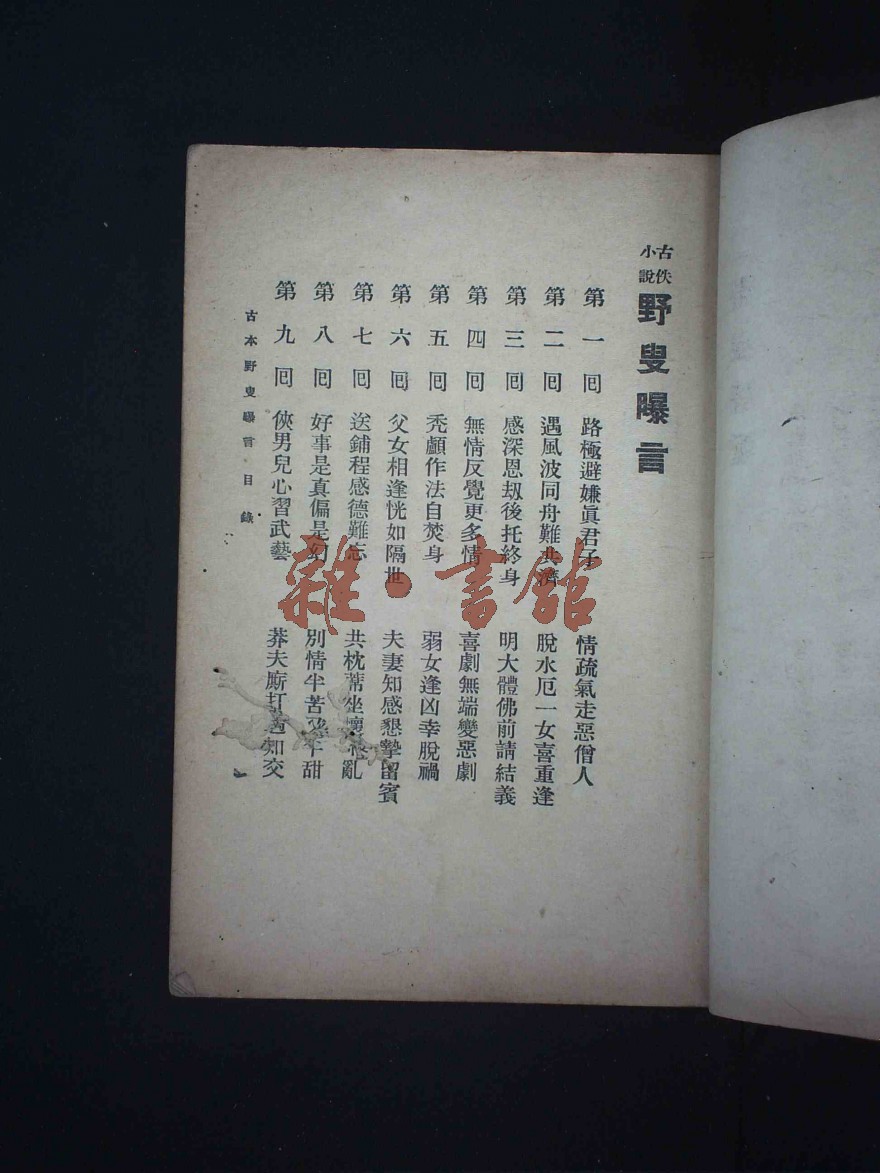 古佚小說 野叟曝言
第一回 路極避嫌眞君子 情疏氣走惡僧人
第二回 遇風波同舟難共濟 脫水厄一女喜重逢
第三回 感深恩刧後托終身 明大體佛前請結義
第四回 無情反覺更多情 喜劇無端變惡劇
第五回 禿顱作法自焚身 弱女逢凶幸脫禍
第六回 父女相逢恍如隔世 夫妻知感懇摯留賓
第七回 送鋪程感德難忘 共枕蓆坐懷 亂
第八回 好事是真偏是幻 別情半苦 半甜
第九回 俠男兒心習武藝 莽夫廝打 知交
古本野叟曝言 目錄
雜·書館